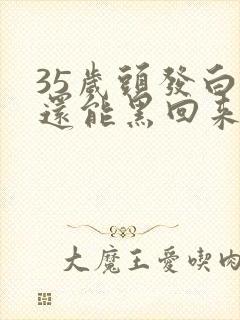 35歲頭發白
還能黑回來
大魔王愛喫肉